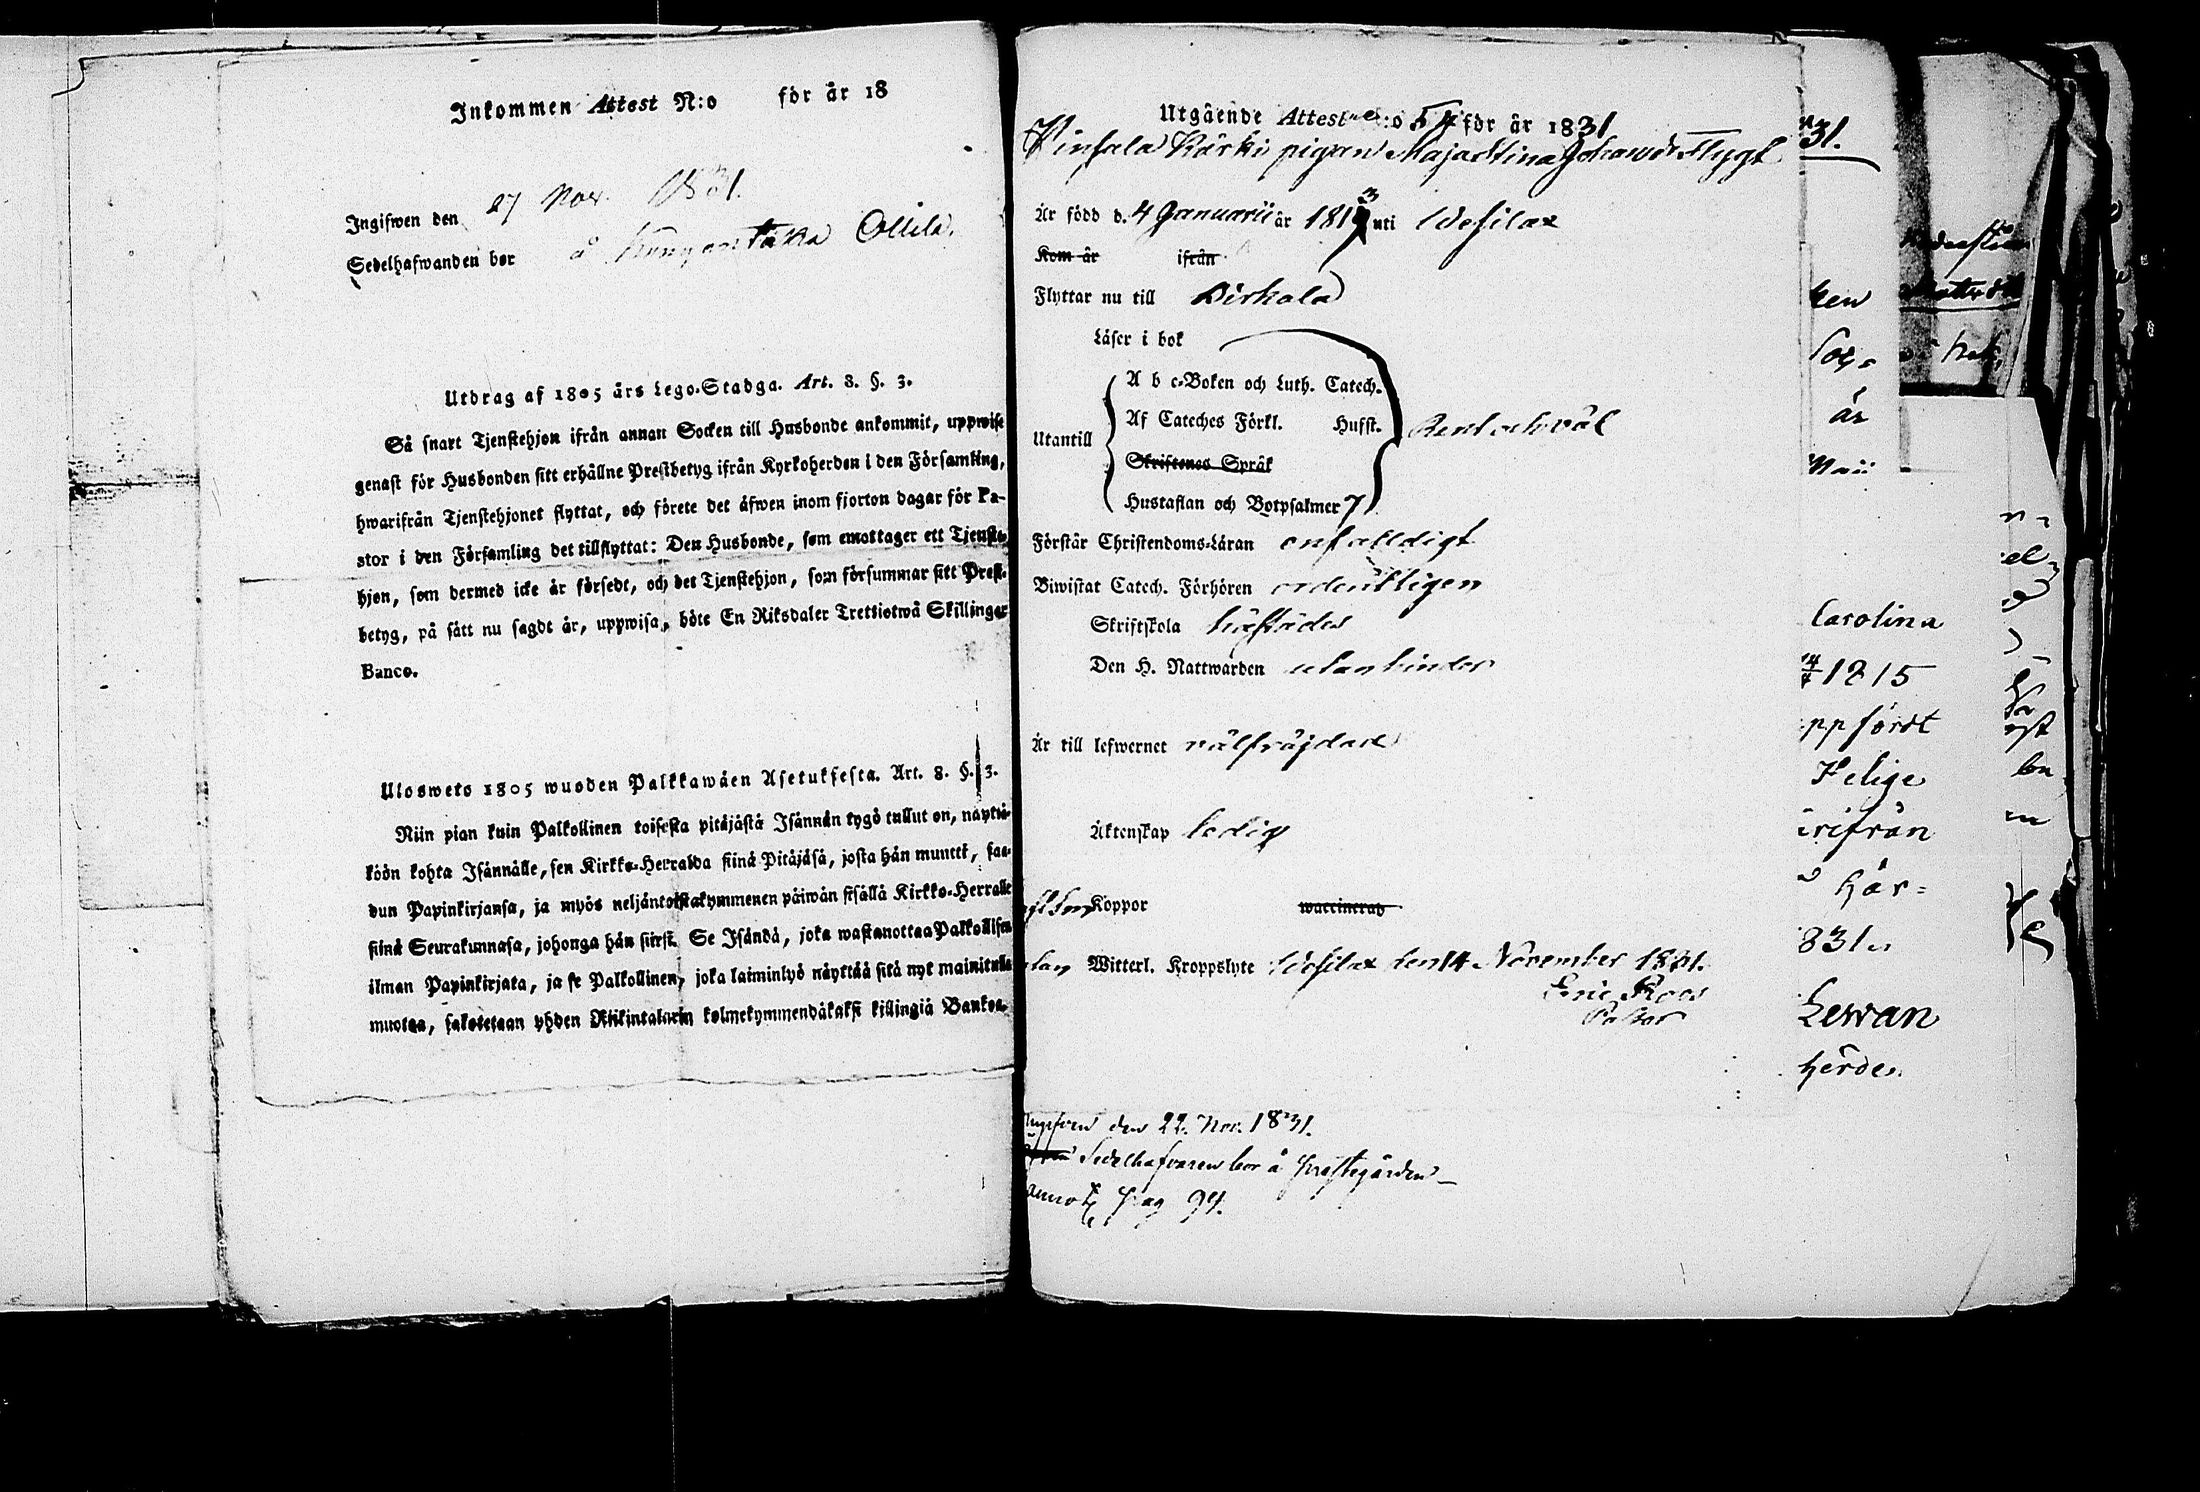 Inkommen Attest N:o för år 18
Ingifwen den 27 Nov. 1831.
Sedelhafwanden bor å Kungantaka Ollila.
Utdrag af 1805 års Lego-Stadga. Art. 8. §. 3.
Så snart Tjenstehjon ifrån annan Socken till Husbonde ankommit, uppwise
genast för Husbonden sitt erhållne Prestbetyg ifrån Kyrkoherden i den Församling,
hwarifrån Tjenstehjonet flyttat, och förete det äfwen inom fjorton dagar för Pa-
stor i den Församling det tillflyttat: Den Husbonde, som emottager ett Tjenste-
hjon, som dermed icke är försedt, och det Tjenstehjon, som försummar sitt Prest-
betyg, på sätt nu sagdt är, uppwisa, böte En Riksdaler Trettiotwå Skillingar
Banco.
Ulosweto 1805 wuoden Palkkawäen Asetuksesta. Art. 8. §. 3.
Niin pian kuin Palkollinen toisesta pitäjästä Isännän tygö tullut on, näyttä-
köön kohta Isännälle, sen Kirkko-Herralda siinä Pitäjäsä, josta hän muutti, saa-
dun Papinkirjansa, ja myös neljäntoistakymmenen päiwän sisällä Kirkko-Herralle
siinä Seurakunnasa, johonga hän siirsi. Se Isändä, joka wastanottaa Palkollisen
ilman Papinkirjata, ja se Palkollinen, joka laiminlyö näyttää sitä nyt mainitulla
muotoa, sakotetaan yhden Riikintalarin kolmekymmendäkaksi killingiä Bankoa.
Utgående Attest N:o 54 för år 1831
Vinsala Kärki pigan Maja Stina Johansdr Flygt
Är född d. 4 Januarii år 1813 uti Wesilax
Kom år ifrån
Flyttar nu till Birkala
Läser i bok
A b c-Boken och Luth. Catech.
Utantill Af Cateches Förkl. Husst. Rent och väl
Skriftenes Språk
Hustaflan och Botpsalmer 7
Förstår Christendoms-Läran enfalldigt
Biwistat Catech. Förhören ordentligen
Skriftskola häfsädes
Den H. Nattwarden utan hinder
Är till lefwernet välfräjdad
Äktenskap ledig
haft Koppor waccinerad
utan Witterl. Kroppslyte Wesilax den 14 November 1831.
Eric Roos
Pastor
Ingifven den 22. Nov. 1831.
Sedelhafvaren bor å Prestegården
annot. pag 94.
31.
ken
år
Maii
Carolina
1815
ppfördt
Helige
irifrån
här=
831.
Lewan
herde.